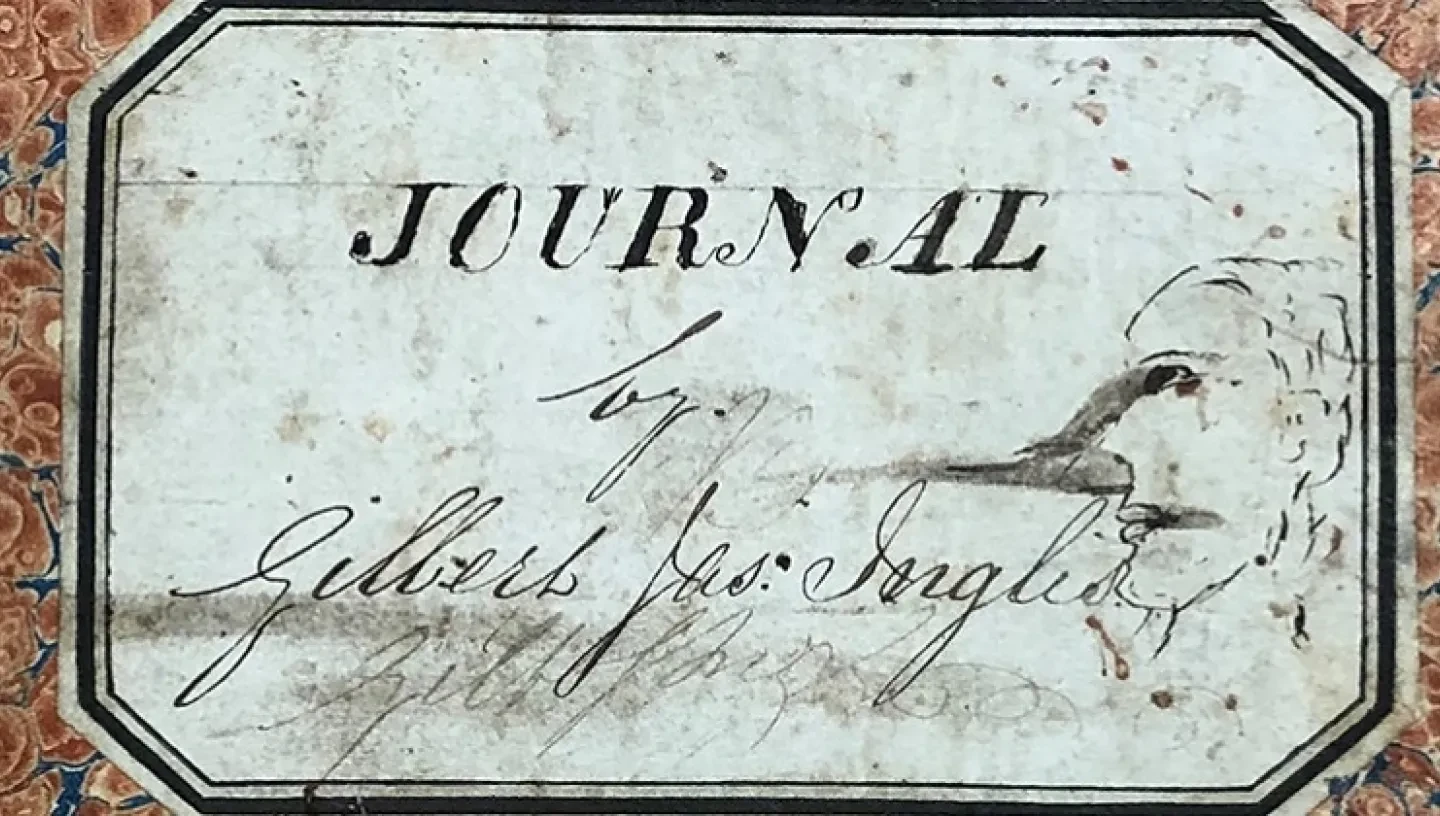 JOURNAL
by.
Gilbert Jas: Inglis